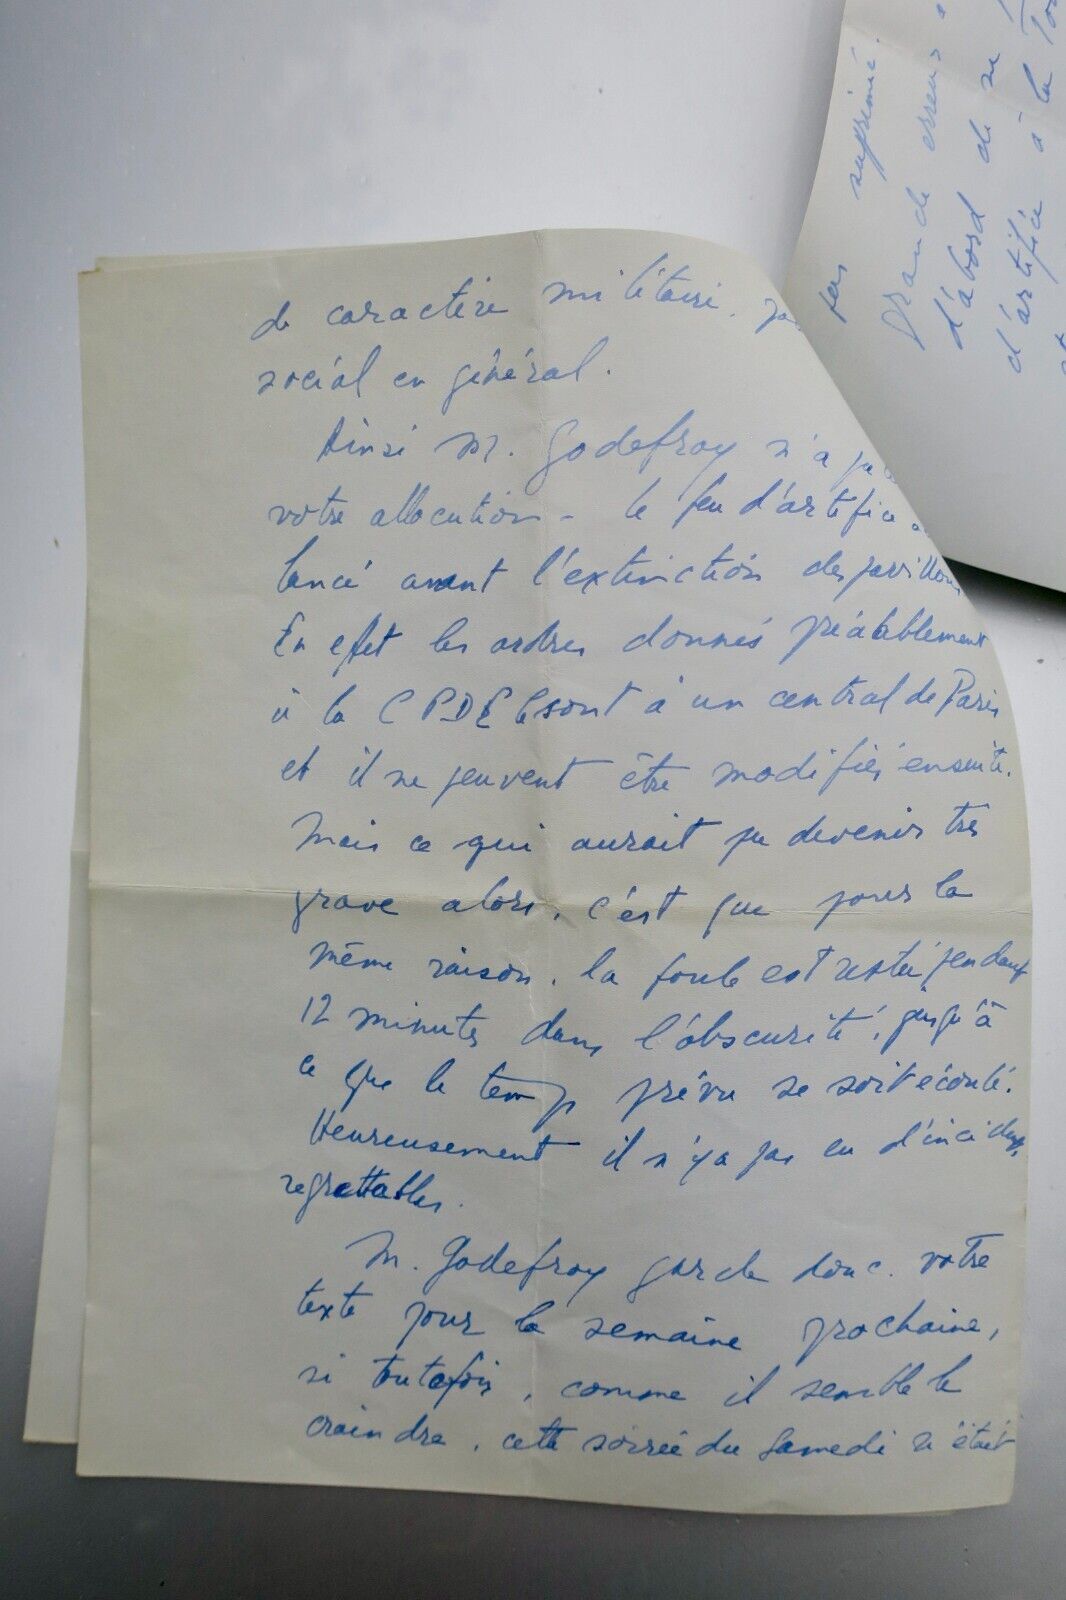 de caractère militaire.
social en général.
Ainsi M. Godefroy n'a
votre allocution - le feu d'artifice
lancé avant l'extinction des pavillons
En effet les ordres donnés préalablement
à la CPDE sont à un central de Paris
et il ne peuvent être modifiés ensuite.
Mais ce qui aurait pu devenir très
grave alors, c'est que pour la
même raison, la foule est restée pendant
12 minutes dans l'obscurité, jusqu'à
ce que le temps prévu se soit écoulé.
Heureusement il n'y a pas eu d'incidents
regrettables.
M. Godefroy garde donc votre
texte pour la semaine prochaine,
si toutefois, comme il semble le
craindre, cette soirée du Samedi n'était
suprimée.
Grande erreur
d'abord de ne
d'artifice à la